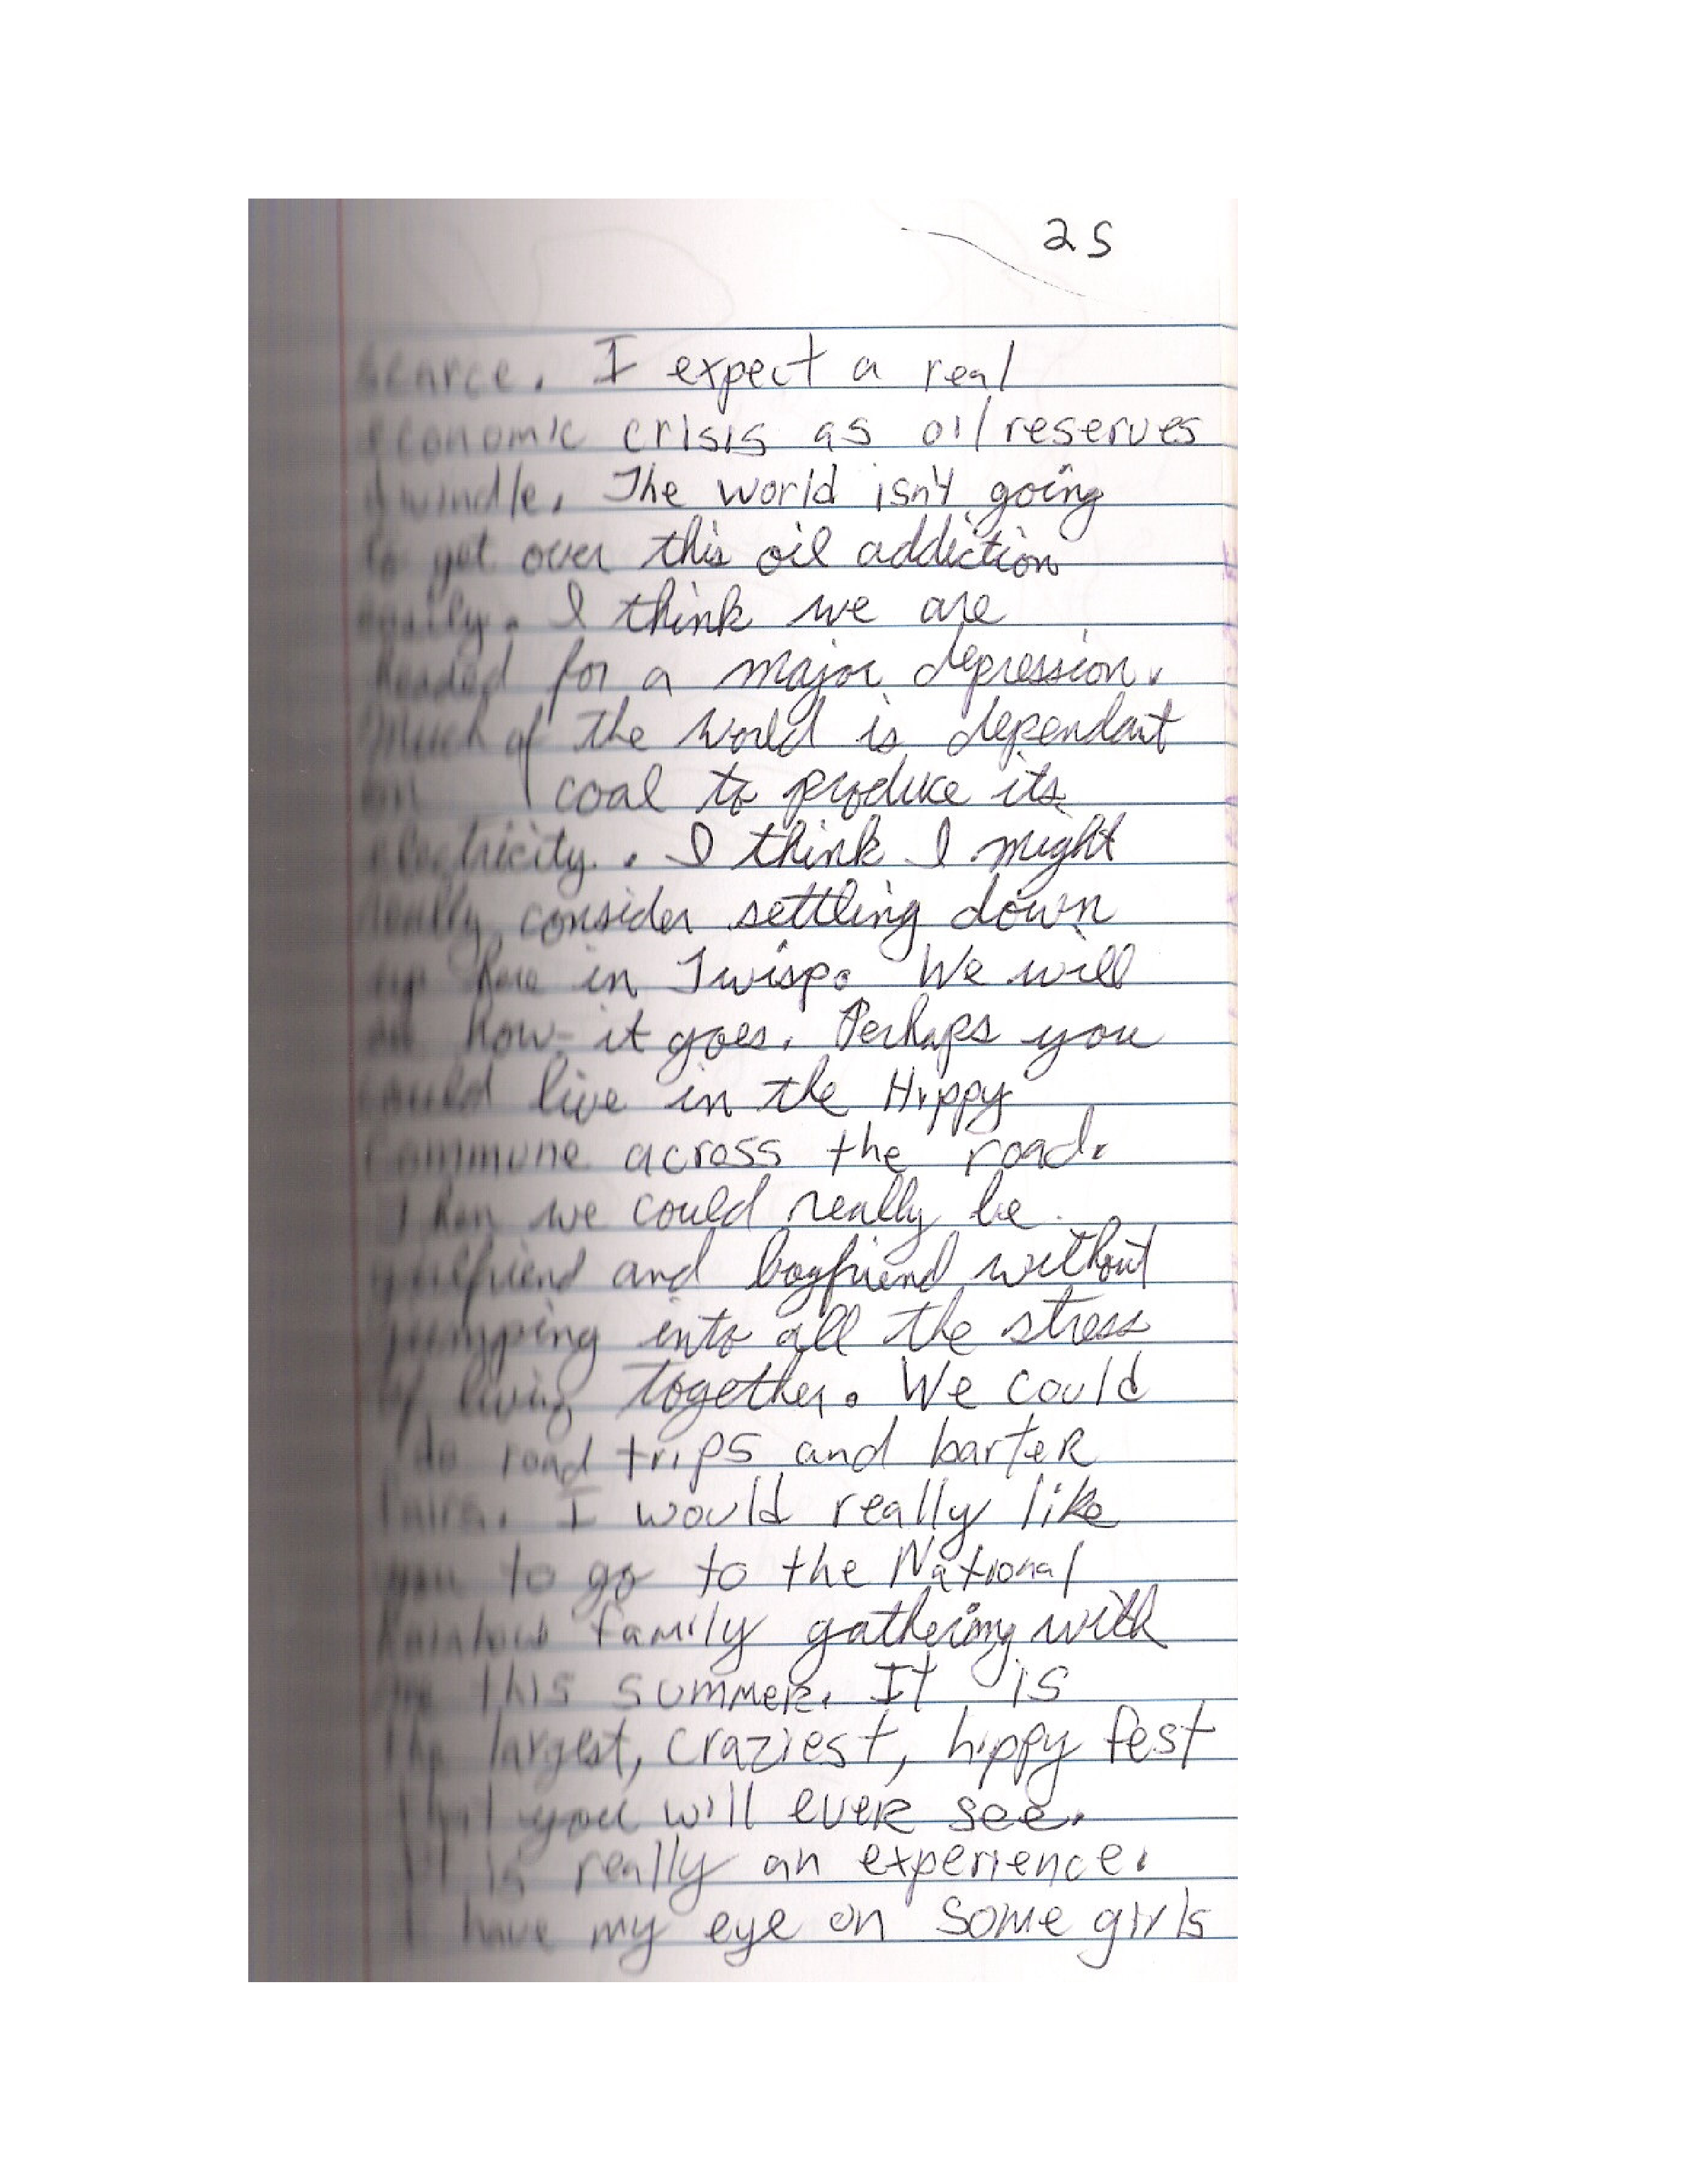 25
scarce. I expect a real
economic crisis as oil reserves
dwindle. The world isn't going
to get over this oil addiction
easily. I think we are
headed for a major depression.
Much of the world is dependant
on coal to produce its
electricity. I think I might
really consider settling down
up here in Twisp. We will
how it goes. Perhaps you
could live in the Hippy
Commune across the road.
Then we could really be
girlfriend and boyfriend without
jumping into all the stress
of living together. We could
do road trips and barter
fairs. I would really like
you to go to the National
Rainbow family gathering with
me this summer. It is
the largest, craziest, hippy fest
that you will ever see.
It is really an experience.
I have my eye on some girls